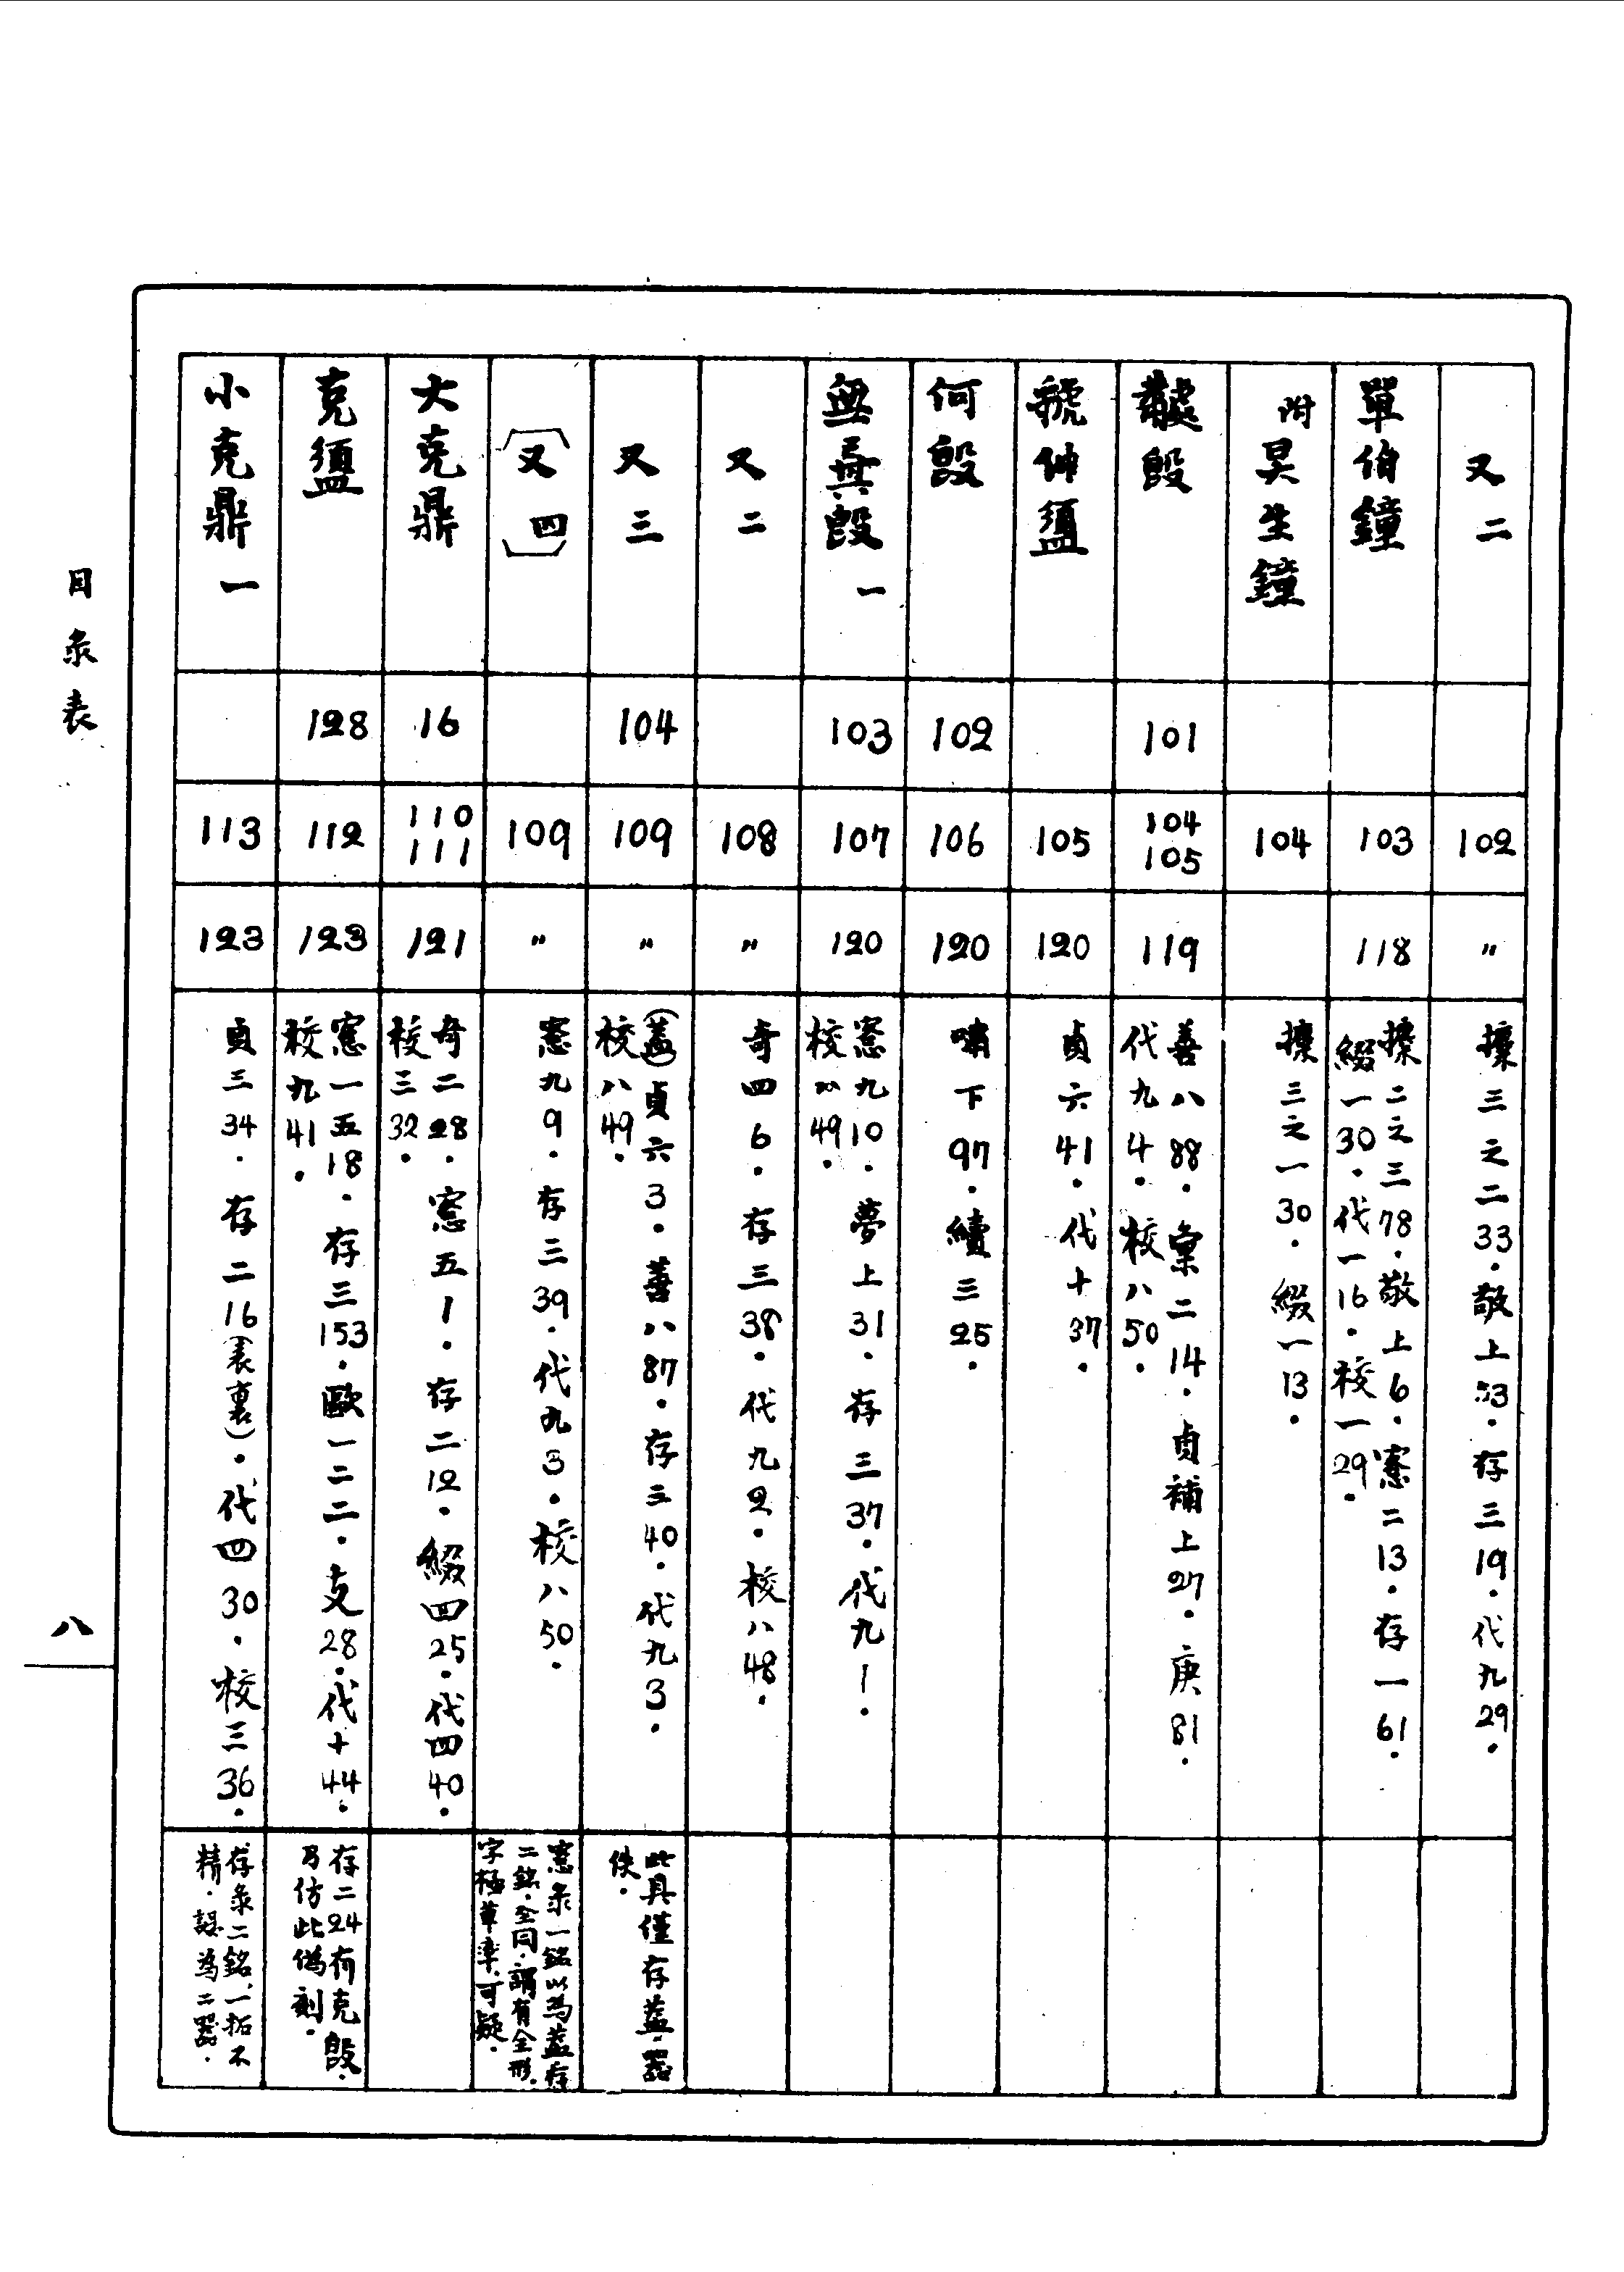 又二
102
〃
攈三之二33．敬上53．存三19．代九29．
單伯鐘
103
118
攈二之三78．敬上6．窓二13．存一61．
綴一30．代一16．校一29．
附昊生鐘
104
攈三之一30．綴一13．
𣪘
101
104
105
119
善八88．彙二14．貞補上27．庚81．
代九4．校八50．
虢仲盨
105
120
貞六41．代十37．
何𣪘
102
106
120
嘯下97．續三25．
無㠱𣪘一
103
107
120
窓九10．夢上31．存三37．代九1．
校八49．
又二
108
〃
奇四6．存三38．代九2．校八48．
又三
104
109
〃
（蓋）貞六3．善八87．存三40．代九3．
校八49．
此具僅存蓋．器
佚．
〔又四〕
109
〃
窓九9．存三39．代九3．校八50．
窓彔一銘以為蓋存
二銘．全同．謂有全形．
字極草率．可疑．
大克鼎
16
110
111
121
奇二28．窓五1．存二12．綴四25．代四40．
校三32．
克盨
128
112
123
窓一五18．存三153．歐一二二．支28．代十44．
校九41．
存二24有克𣪘．
乃仿此僞刻．
小克鼎一
113
123
貞三34．存二16（表裏）．代四30．校三36．
存彔二銘、一拓不
精．誤為二器．
目彔表
八